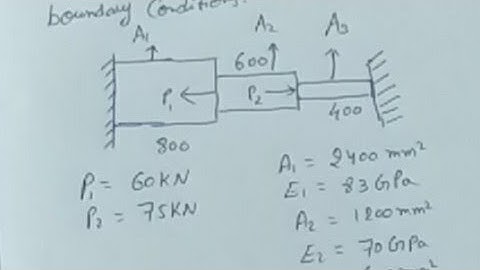 boundary Conditions.
A₁ A₂ A₃
600
P₁ P₂
400
800
P₁ = 60KN
P₂ = 75KN
A₁ = 2400 mm²
E₁ = 83 GPa
A₂ = 1200 mm²
E₂ = 70 GPa